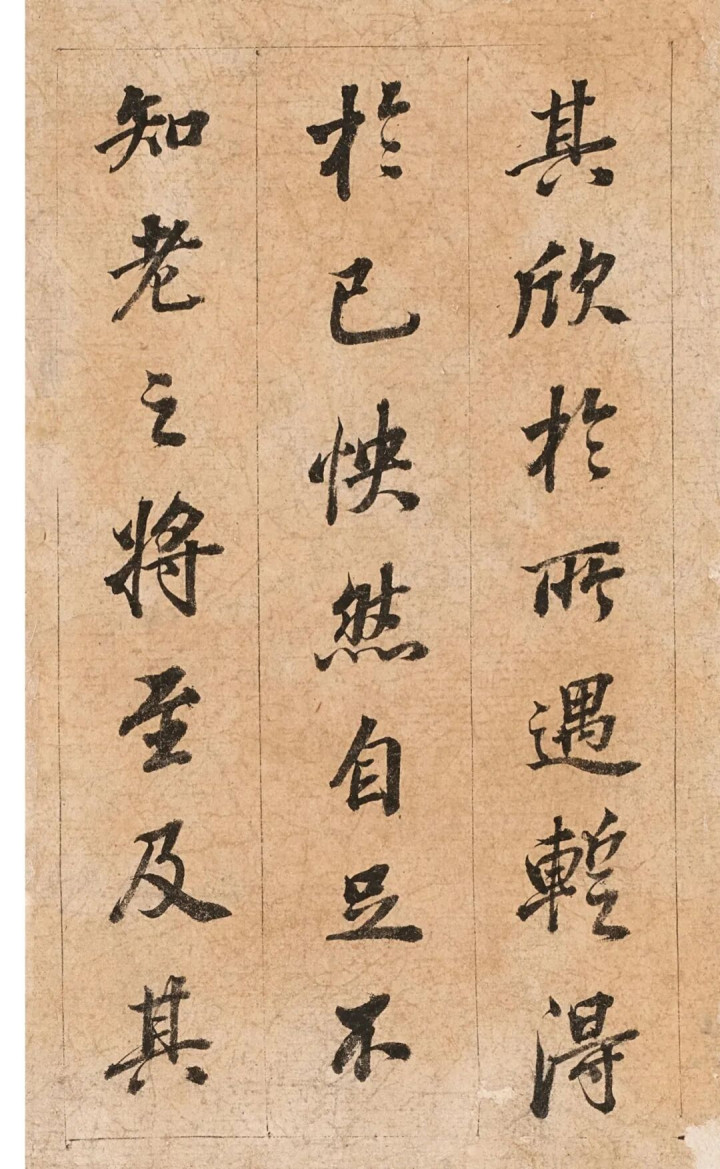 其欣於所遇蹔得
於己怏然自足不
知老之將至及其